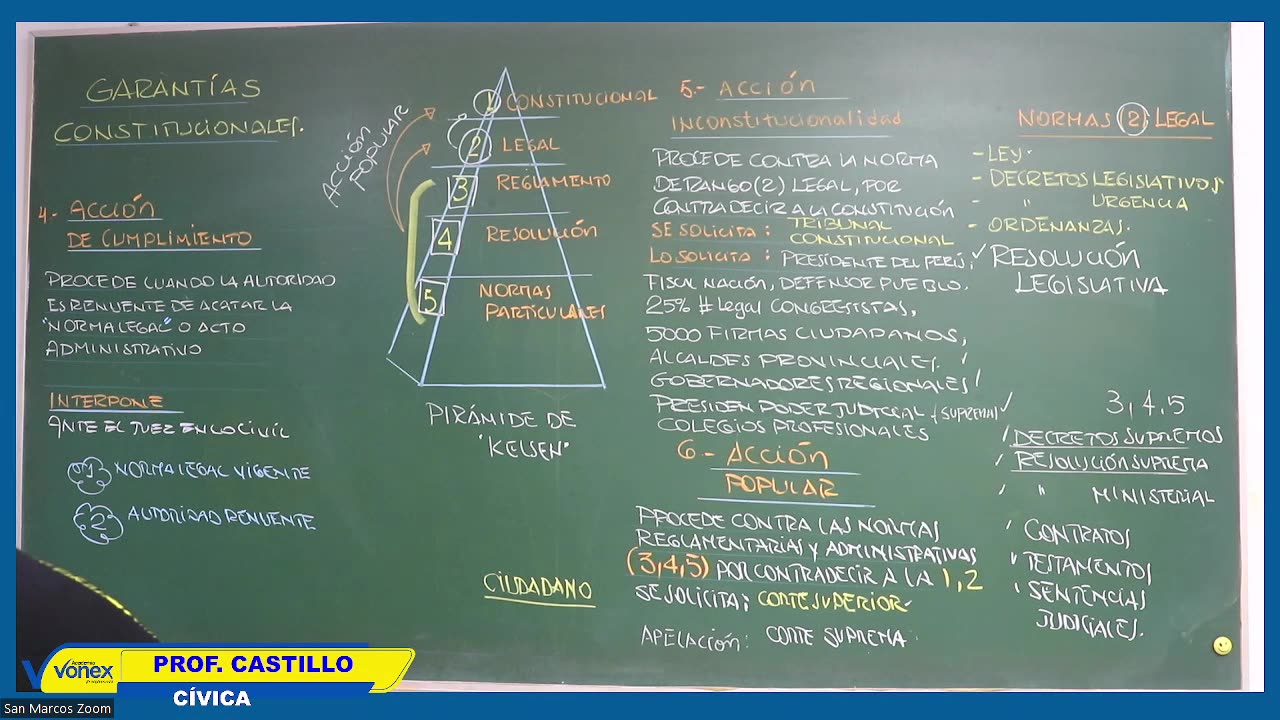 GARANTÍAS
CONSTITUCIONALES.
4.- ACCIÓN
DE CUMPLIMIENTO
PROCEDE CUANDO LA AUTORIDAD
ES RENUENTE DE ACATAR LA
"NORMA LEGAL" O ACTO
ADMINISTRATIVO
INTERPONE
ANTE EL JUEZ EN LO CIVIL
1 NORMA LEGAL VIGENTE
2 AUTORIDAD RENUENTE
ACCIÓN
POPULAR
1 CONSTITUCIONAL
2 LEGAL
3 REGLAMENTO
4 RESOLUCIÓN
5 NORMAS
PARTICULARES
PIRÁMIDE DE
"KELSEN"
CIUDADANO
5.- ACCIÓN
INCONSTITUCIONALIDAD
PROCEDE CONTRA LA NORMA
DE RANGO (2) LEGAL, POR
CONTRADECIR A LA CONSTITUCIÓN
SE SOLICITA: TRIBUNAL
CONSTITUCIONAL
LO SOLICITA: PRESIDENTE DEL PERÚ,
FISCAL NACIÓN, DEFENSOR PUEBLO.
25% # Legal CONGRESISTAS,
5000 FIRMAS CIUDADANOS,
ALCALDES PROVINCIALES.
GOBERNADORES REGIONALES
PRESIDEN PODER JUDICIAL (SUPREMA)
COLEGIOS PROFESIONALES
6.- ACCIÓN
POPULAR
PROCEDE CONTRA LAS NORMAS
REGLAMENTARIAS Y ADMINISTRATIVAS
(3,4,5) POR CONTRADECIR A LA 1,2
SE SOLICITA: CORTE SUPERIOR
APELACIÓN: CORTE SUPREMA
NORMAS (2) LEGAL
- LEY
- DECRETOS LEGISLATIVOS
- " URGENCIA
- ORDENANZAS.
RESOLUCIÓN
LEGISLATIVA
3,4.5
DECRETOS SUPREMOS
RESOLUCIÓN SUPREMA
" MINISTERIAL
CONTRATOS
TESTAMENTOS
SENTENCIAS
JUDICIALES.
Academia
Vonex
PROF. CASTILLO
CÍVICA
San Marcos Zoom